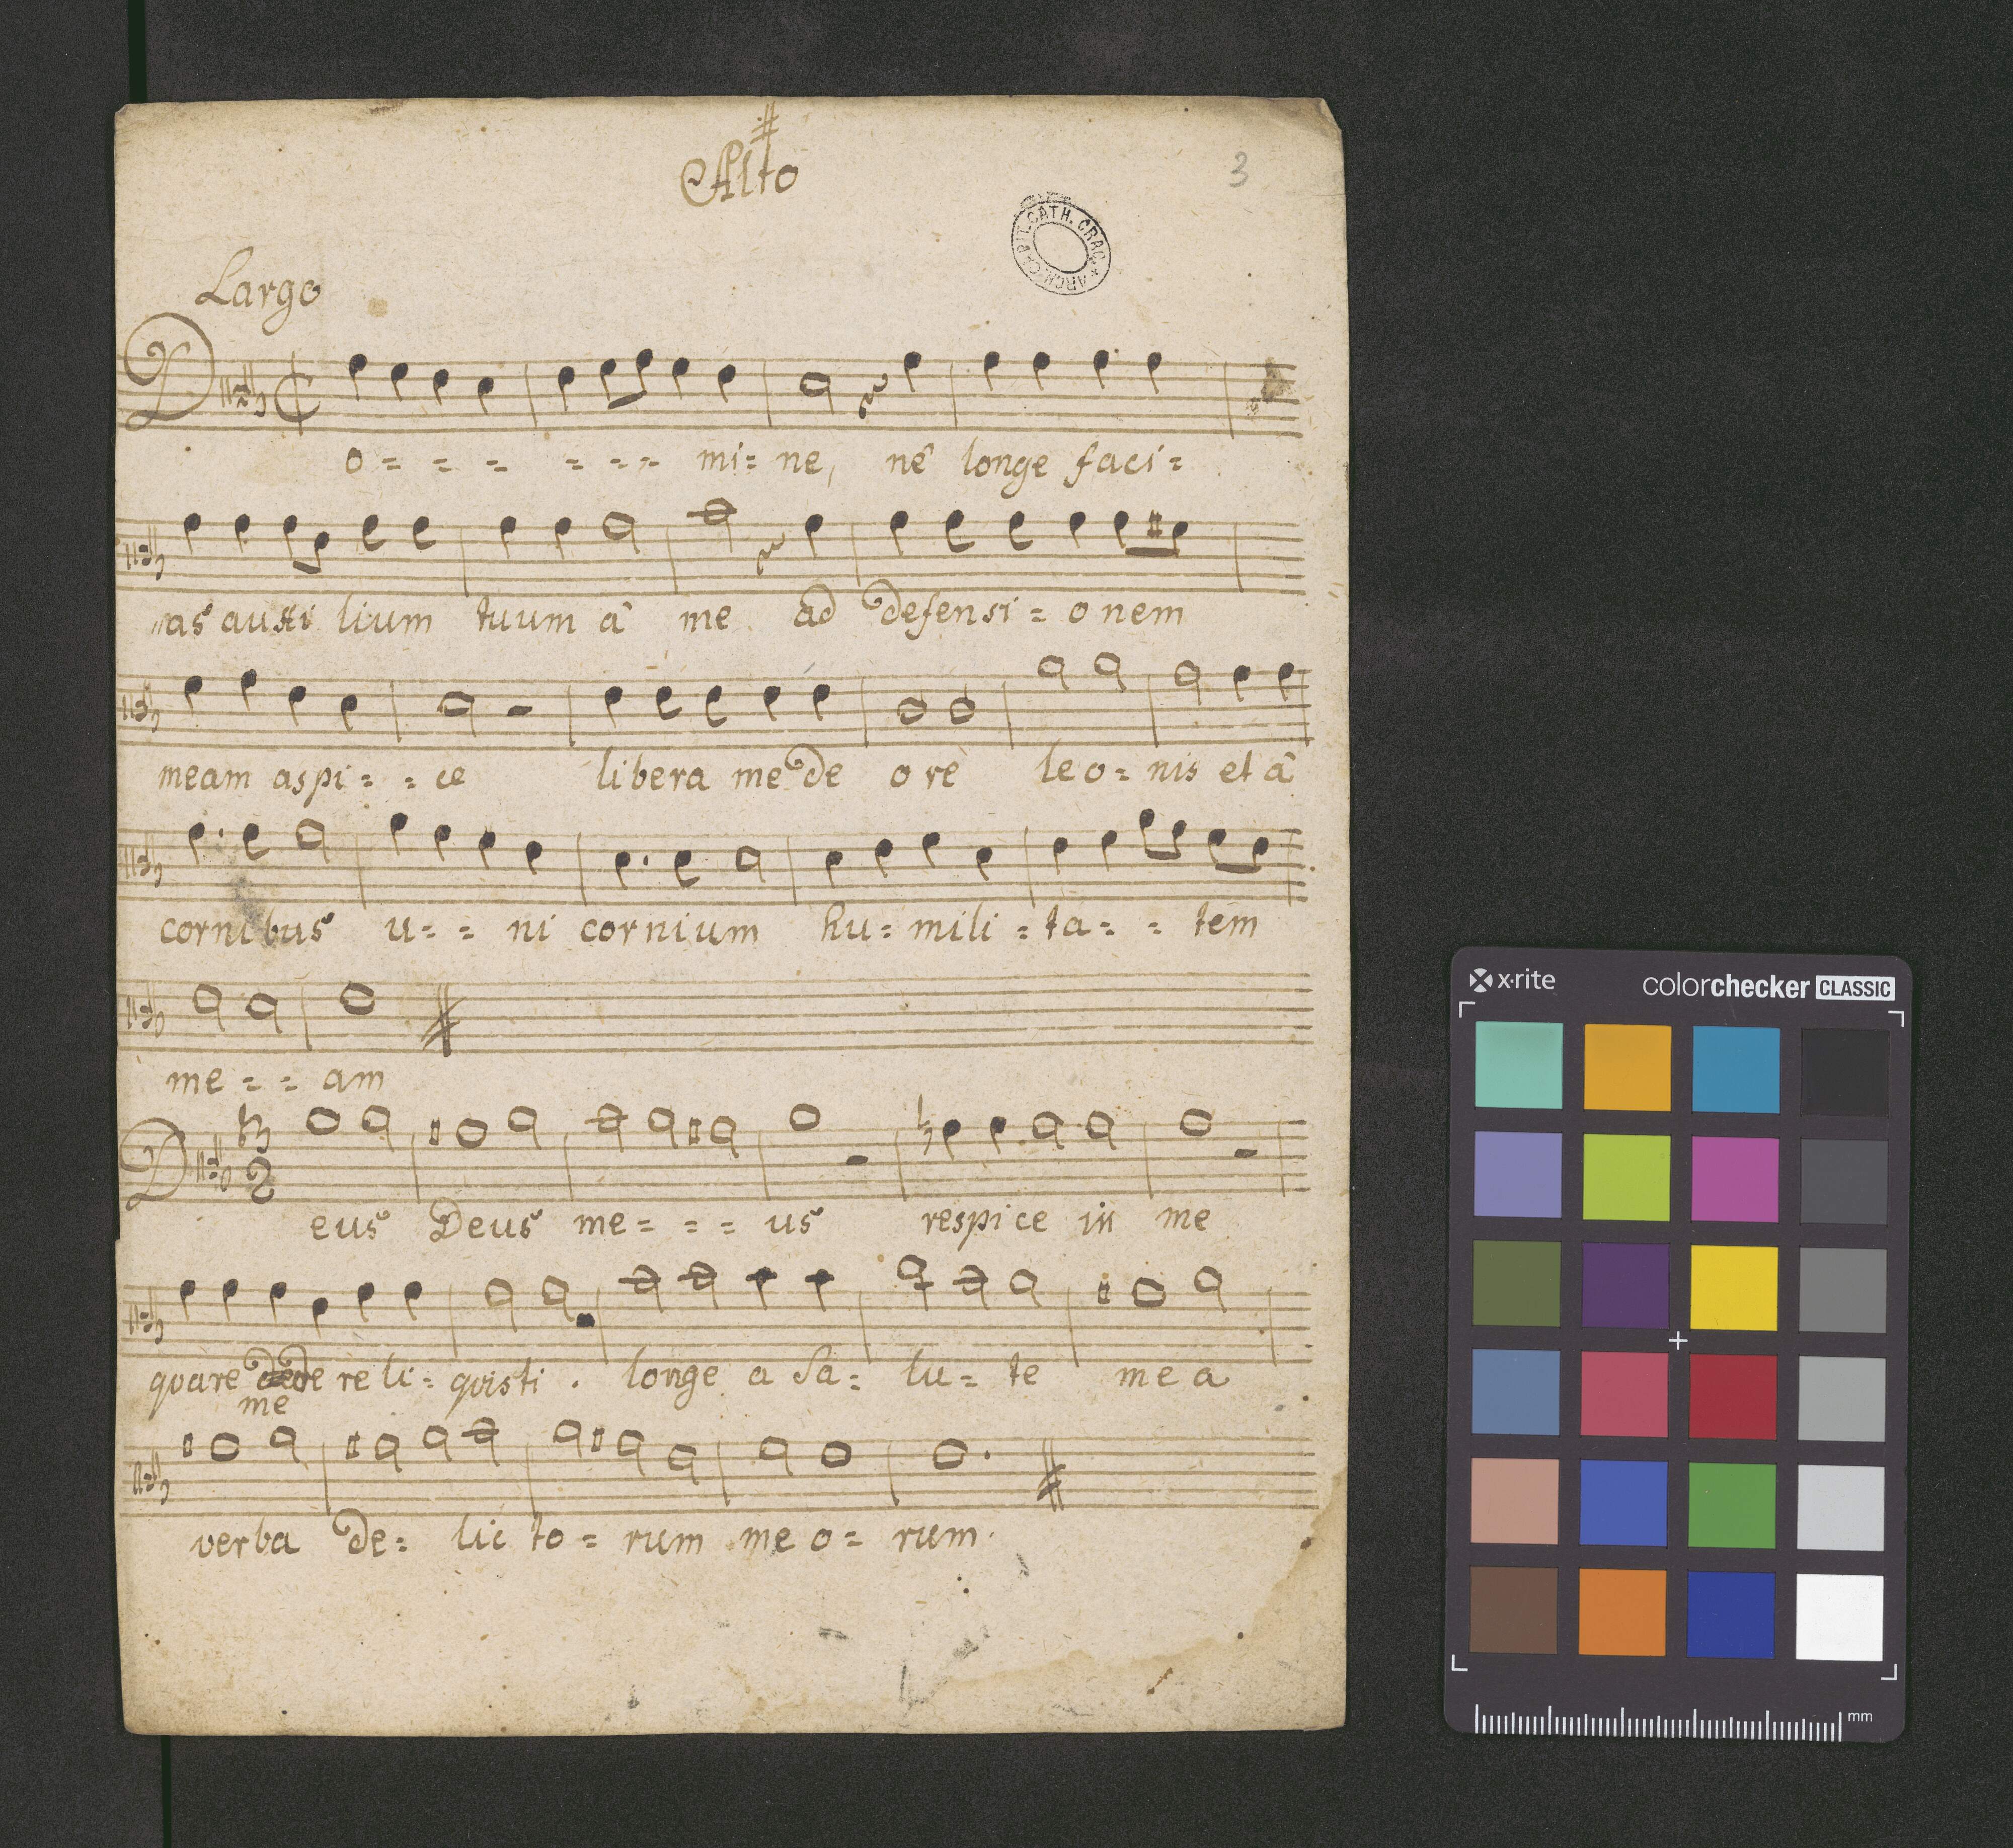 Alto
3
ARCH. CAPIT. CATH. CRAC.
Largo
Do - - - - - - mi = ne, nê longe faci =
as auxi lium tuum â me ad defensi = o nem
meam aspi = = ce libera me de ore leo = nis et â
cornibus u = = ni cornium hu = mili = ta = = tem
me = = am
3
2
Deus Deus me = = = us respice in me
quare me de reli = quisti . longe a sa = lu = te mea
verba de = lic to = rum meo = rum.
x·rite
colorchecker CLASSIC
mm